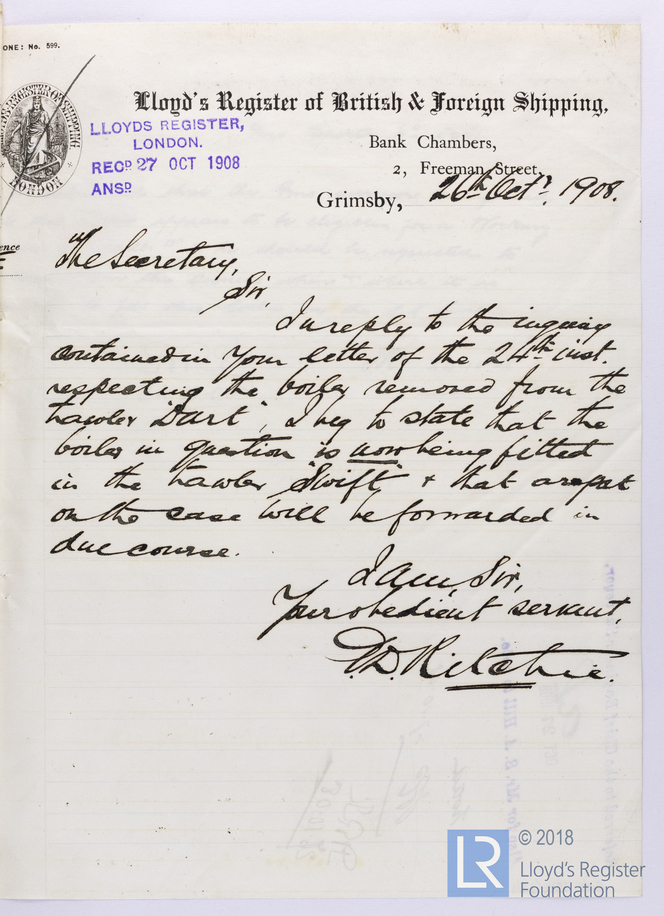 ONE: No. 599.
Lloyd's Register of British & Foreign Shipping,
LLOYDS REGISTER,
LONDON.
RECD 27 OCT 1908
ANSD
LONDON
Bank Chambers,
2, Freeman Street,
Grimsby, 26th Octr. 1908.
ence
The Secretary,
Sir,
In reply to the inquiry
contained in your letter of the 24th inst.
respecting the boiler removed from the
trawler "Dart", I beg to state that the
boiler in question is now being fitted
in the trawler "Swift" & that a report
on the case will be forwarded in
due course.
I am, Sir,
Your obedient servant,
D. Ritchie.
© 2018
LR
Lloyd's Register
Foundation